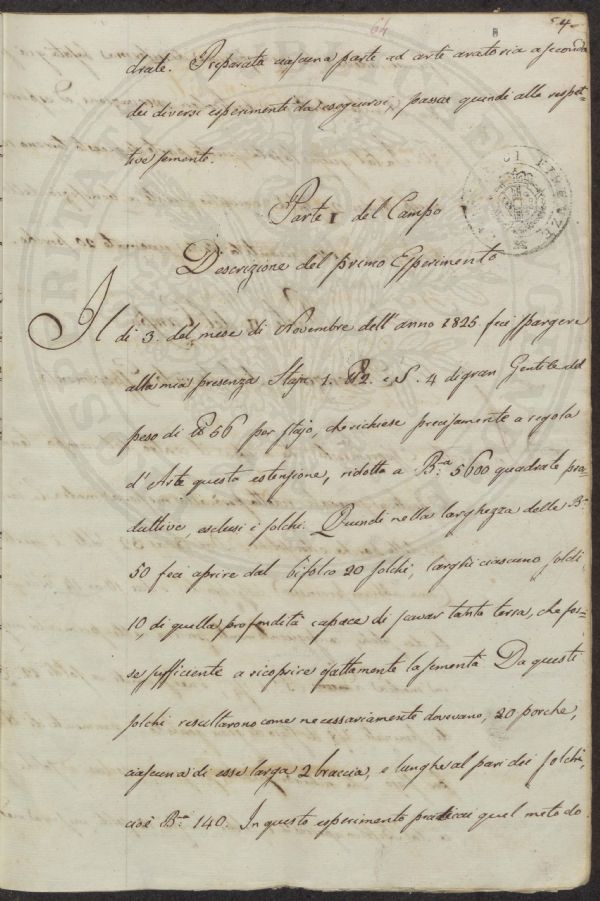 64
54
drate. Preparata ciascuna parte ad arte aratoria a seconda
dei diversi esperimenti da eseguirsi, passai quindi alle respet-
tive semente.
Parte I del Campo
Descrizione del primo Esperimento
Il di 3. del mese di Novembre dell'anno 1825 feci spargere
alla mia presenza Staja 1. ℔ 2. e S. 4 di gran Gentile del
peso di ℔ 56 per stajo, che richiese precisamente a regola
d'Arte questa estensione, ridotta a B.a 5600 quadrate pro-
duttive, esclusi i solchi. Quindi nella larghezza delle B.a
50 feci aprire dal bifolco 20 solchi, larghi ciascuno soldi
10, di quella profondità capace di scavar tanta terra, che fos-
se sufficiente a ricoprire esattamente la sementa. Da questi
solchi resultarono come necessariamente dovevano, 20 porche,
ciascuna di esse larga 2 braccia, e lunghe al pari dei solchi,
cioè B.a 140. In questo esperimento praticai quel metodo